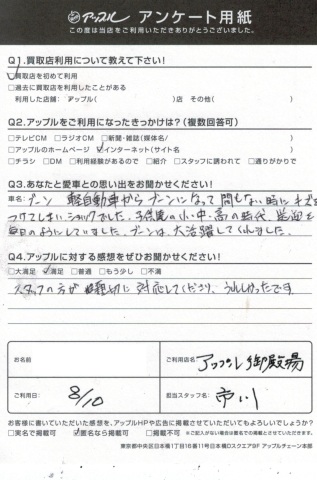 アップル アンケート用紙
この度は当店をご利用いただきありがとうございました。
Q1.買取店利用について教えて下さい!
☑買取店を初めて利用
□過去に買取店を利用したことがある
利用した店舗:アップル( )店 その他( )
Q2.アップルをご利用になったきっかけは?(複数回答可)
□テレビCM □ラジオCM □新聞・雑誌(媒体名/ )
□アップルのホームページ ☑インターネット(サイト名 )
□チラシ □DM □利用経験があるので □紹介 □スタッフに誘われて □通りがかりで
Q3.あなたと愛車との思い出をお聞かせください!
車名:ブーン 軽自動車からブーンになって間もない時にキズを
つけてしまいショックでした。子供達の小・中・高の時代、送迎を
毎日のようにしていました。ブーンは大活躍してくれました。
Q4.アップルに対する感想をぜひお聞かせください!
□大満足 ☑満足 □普通 □もう少し □不満
スタッフの方が親切に対応してくださり、うれしかったです
お名前
ご利用店名 アップル御殿場
ご利用日: 8/10
担当スタッフ名: 市川
お客様に書いていただいた感想を、アップルHPや広告に掲載させていただいてもよろしいでしょうか?
□実名ご掲載可 ☑匿名なら掲載可 □掲載不可 ※ご記入がない場合は匿名での掲載とさせていただきます。
東京都中央区日本橋1丁目10番11号日本橋Dスクエア9F アップルチェーン本部